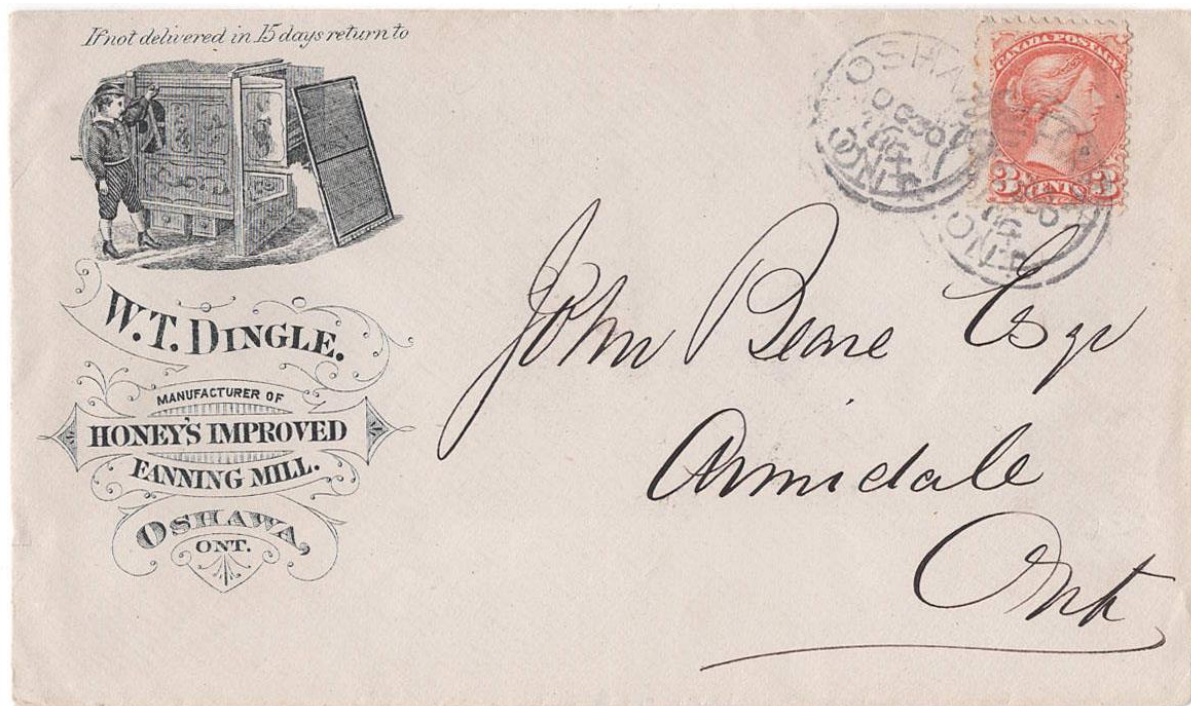 If not delivered in 15 days return to
W.T. DINGLE.
MANUFACTURER OF
HONEY'S IMPROVED
FANNING MILL.
OSHAWA,
ONT.
CANADA POSTAGE
3 CENTS 3
OSHAWA
OC 30
ONT
ONT
John Beare Esqr
Armidale
Ont